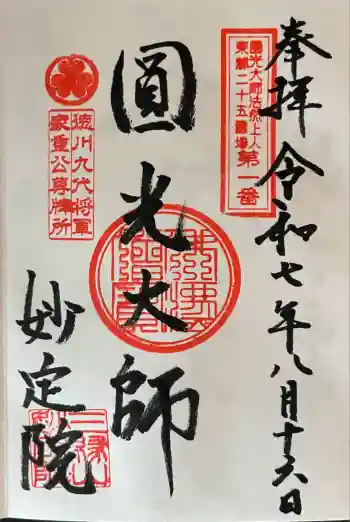 奉拝 令和七年八月十六日
圓光大師法然上人
東都二十五霊場
第一番
圓光大師
徳川九代将軍
家重公尊牌所
妙定院